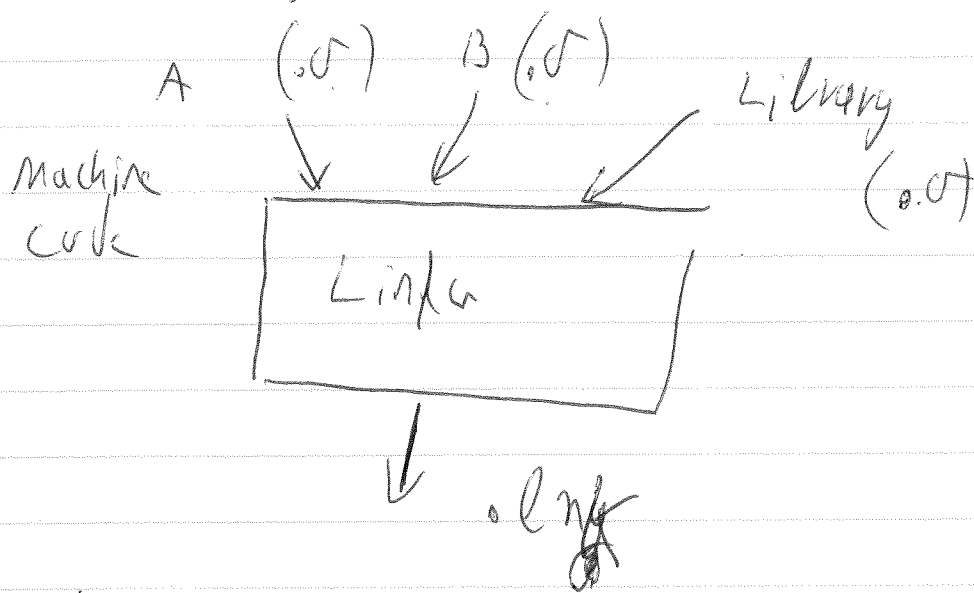 A (.o) B (.o) Library
(.o)
Machine
code
Linker